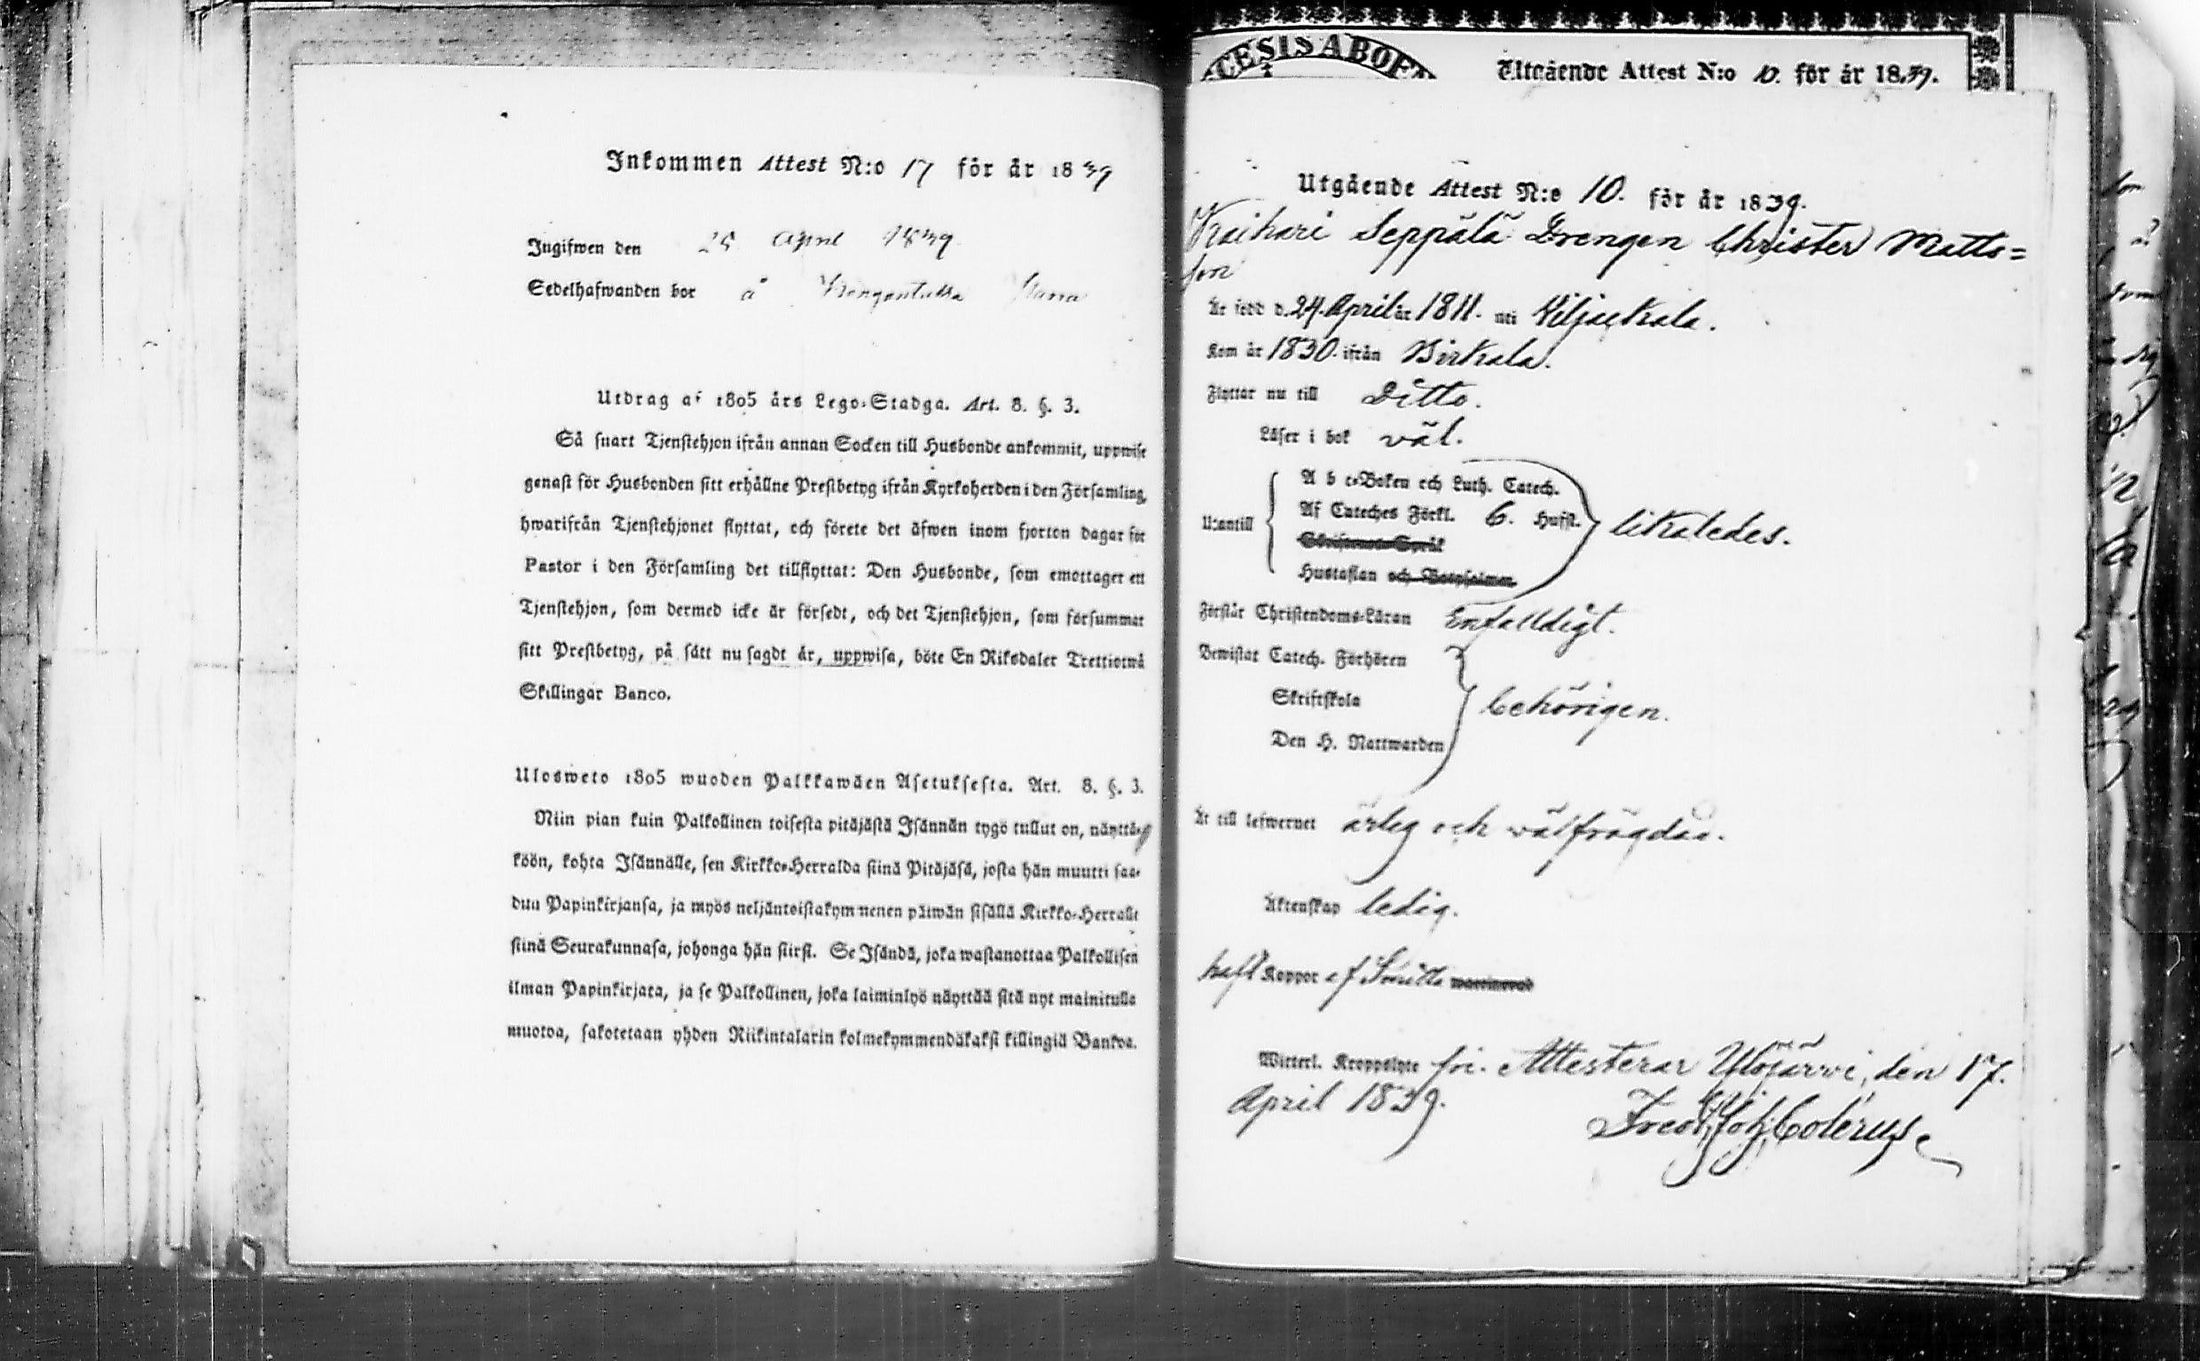 Inkommen Attest N:o 17 för år 1839
Ingifwen den 28 April 1839
Sedelhafwanden bor å
Utdrag af 1805 års Lego-Stadga. Art. 8. §. 3.
Så snart Tjenstehjon ifrån annan Socken till Husbonde ankommit, uppwise
genast för Husbonden sitt erhållne Prestbetyg ifrån Kyrkoherden i den Församling,
hwarifrån Tjenstehjonet flyttat, och förete det äfwen inom fjorton dagar för
Pastor i den Församling det tillflyttat: Den Husbonde, som emottager ett
Tjenstehjon, som dermed icke är försedt, och det Tjenstehjon, som försummar
sitt Prestbetyg, på sätt nu sagdt är, uppwisa, böte En Riksdaler Trettiotwå
Skillingar Banco.
Ulosweto 1805 wuoden Palkkawäen Asetuksesta. Art. 8. §. 3.
Niin pian kuin Palkollinen toisesta pitäjästä Isännän tygö tullut on, näyttä-
köön, kohta Isännälle, sen Kirkko-Herralda siinä Pitäjäsä, josta hän muutti saa-
dun Papinkirjansa, ja myös neljäntoistakymmenen päiwän sisällä Kirkko-Herralle
siinä Seurakunnasa, johonga hän siirsi. Se Isändä, joka wastanottaa Palkollisen
ilman Papinkirjata, ja se Palkollinen, joka laiminlyö näyttää sitä nyt mainitulla
muotoa, sakotetaan yhden Riikintalarin kolmekymmendäkaksi killingiä Bankoa.
CESIS ABOE
Utgående Attest N:o 10. för år 1839.
Utgående Attest N:o 10. för år 1839.
Kaihari Seppälä Drengen Christer Matts=
son
Är född d. 24. April år 1811. uti Wiljackala.
Kom år 1830. ifrån Birkala.
Flyttar nu till Ditto.
Läser i bok väl.
Utantill
A b c-Boken och Luth. Catech.
Af Cateches Förkl. 6. Hufst.
Skriftenes Språk
Hustaflan och Botpsalmer
likaledes.
Förstår Christendoms-Läran Enfalldigt.
Bewistat Catech. Förhören
Skriftskola
Den H. Nattwarden
behörigen.
Är till lefwernet ärlig och wälfrägdad.
Äktenskap ledig.
haft Koppor af Smitta
Witterl. Kroppslyte fri. Attesterar Ylöjärvi, den 17.
April 1839.